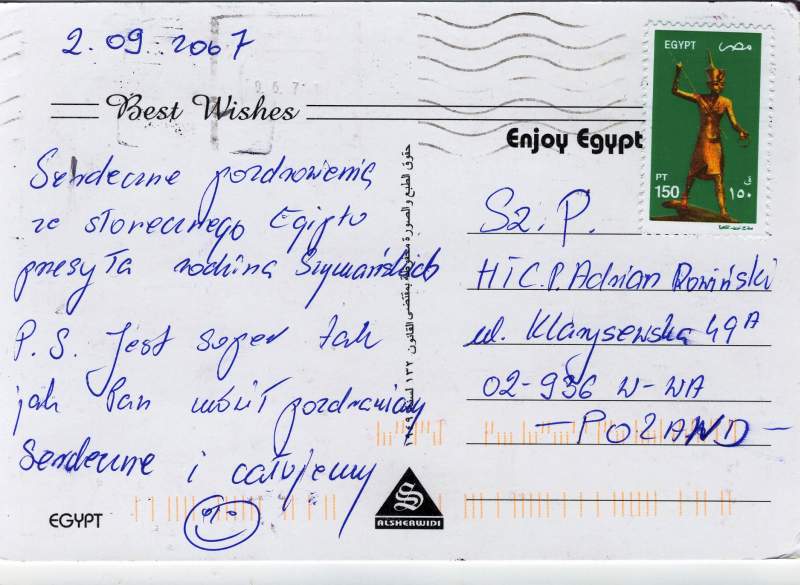 2.09.2007
Best Wishes
Enjoy Egypt
EGYPT مصر
PT
150 ١٥٠
Serdeczne pozdrowienia
ze słonecznego Egiptu
przesyła rodzina Szymańskich
P.S. Jest super tak
jak Pan mówił pozdrawiamy
Serdecznie i całujemy
EGYPT
حقوق الطبع والصورة محفوظة بمقتضى القانون ١٣٢ لسنة ١٩٤٩
ALSHERWIDI
Sz. P.
HTC.P. Adrian Rowiński
ul. Klarysewska 49A
02-936 W-WA
-POLAND-